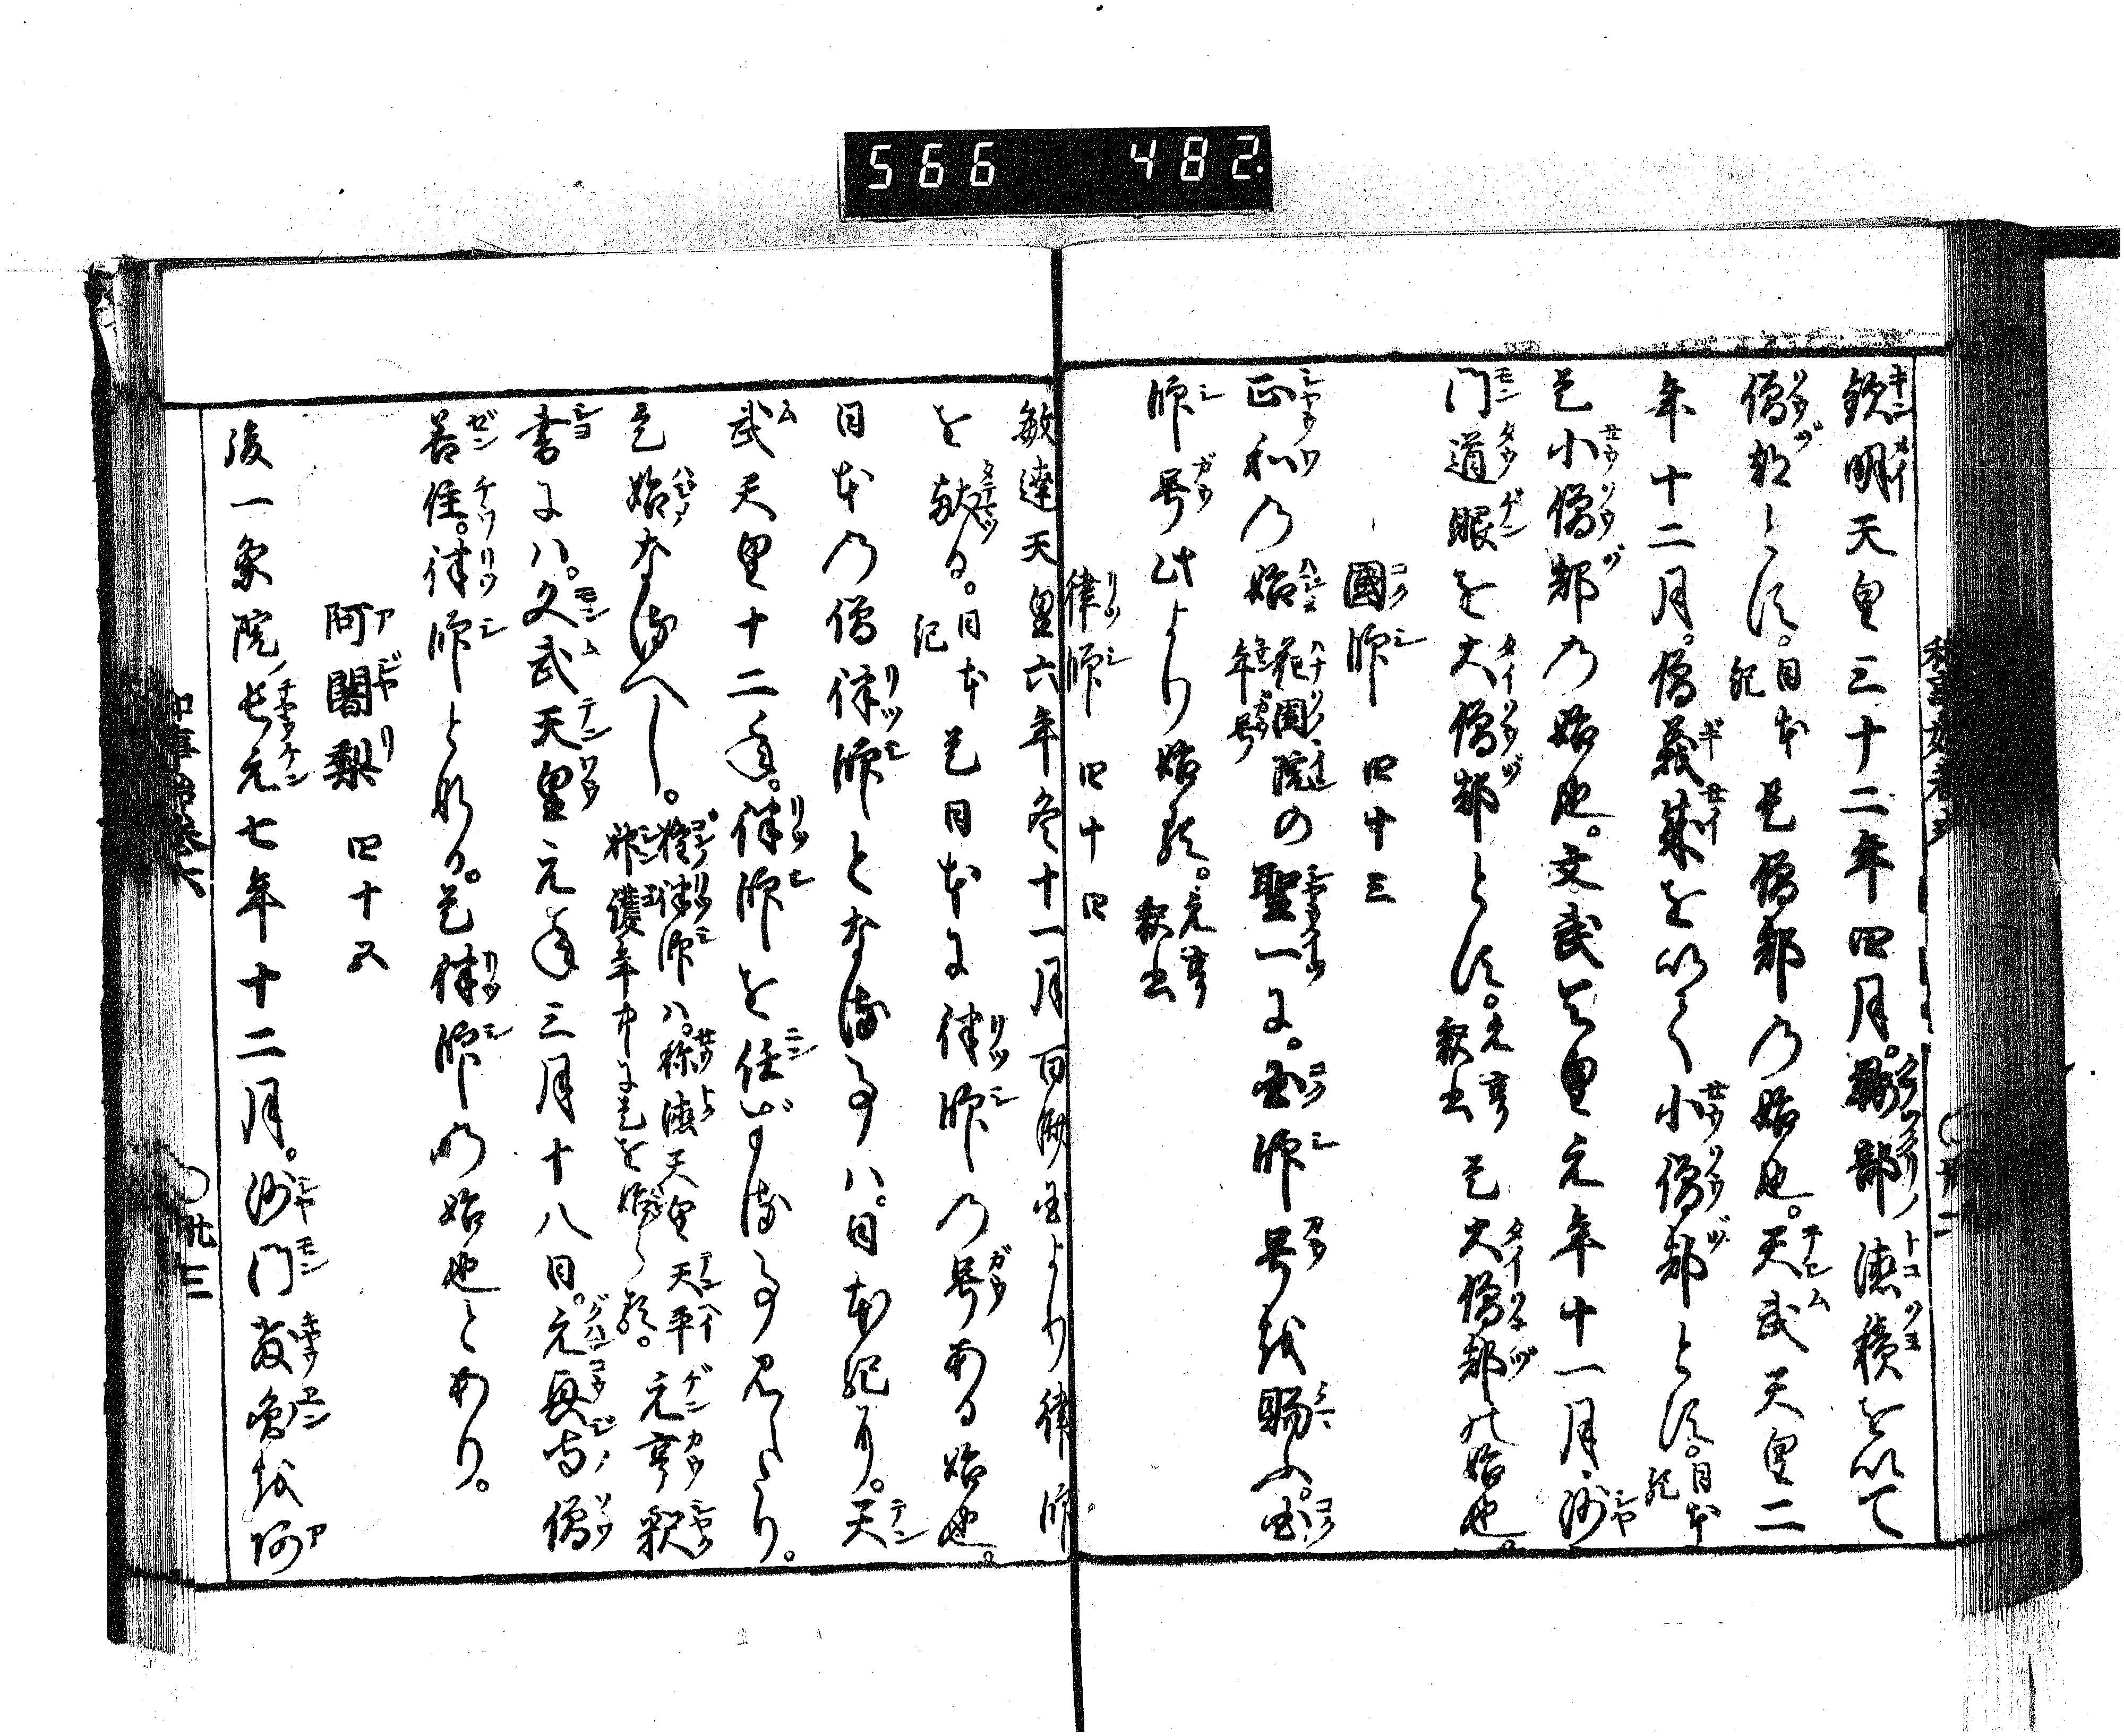 566 482
欽明天皇三十二年四月。鞍部徳積を以て
僧都とす。日本紀是僧都の始也。天武天皇二
年十二月。僧義成を以て小僧都とす。日本紀
是小僧都の始也。文武天皇元年十一月沙
門道眼を大僧都とす。元亨釈書是大僧都の始也。
國師 四十三
正和の始花園院の年号聖一に。国師号を賜ふ。国
師号此より始る。元亨釈書
律師 四十四
敏達天皇六年冬十一月百済国より律師
を献る。日本紀是日本に律師の号ある始也。
日本の僧律師となる事ハ。日本紀に。天
武天皇十二年。律師を任ずる事見へたり。
是始なるへし。権律師ハ。称徳天皇天平神護年中に是を始らる。元亨釈
書にハ。文武天皇元年三月十八日。元興寺ノ僧
善住。律師となる。是律師の始也とあり。
阿闍梨 四十五
後一条院ノ長元七年十二月。沙門教円を阿
和事始巻六
〇廿三